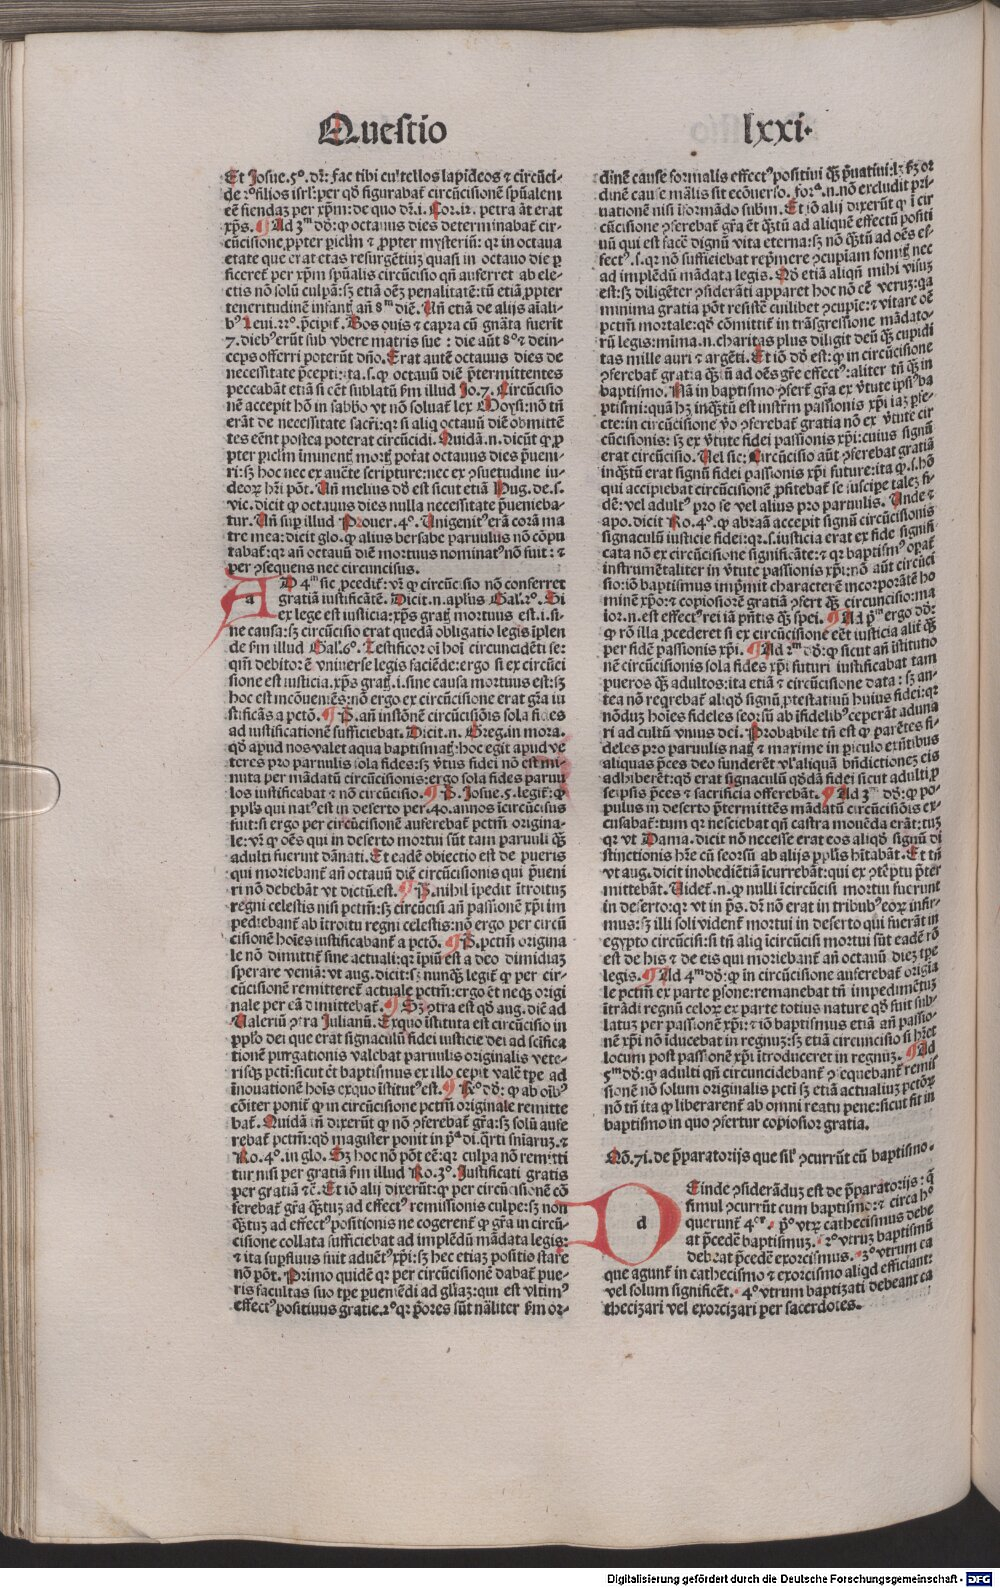 Questio lxxi.
Et Josue.5º. dr̄: fac tibi cultellos lapideos ⁊ circūci-
de 2º filios isrl̄: per qd̄ figurabat̄ circūcisionē spūalem
eē fiendaȝ per xp̄m: de quo dr̄.i. Cor.12. petra āt erat
xp̄s. ¶ Ad 3m dd̄: ꝙ octauus dies determinabat̄ cir-
cūcisione ꝓpter picl̄m ⁊ ꝓpter mysteriū: qr in octaua
etate que erat etas resurgētiuȝ quasi in octauo die ꝑ
ficeret̄ per xp̄m spūalis circūcisio qn̄ auferret ab ele-
ctis nō solū culpā: sȝ etiā oēȝ penalitatē: tū etiā ꝓpter
teneritudinē infantȝ añ 8m diē. Uñ etiā de alijs aīali-
bꝰ Leui.22º. p̄cipit̄. Bos ouis ⁊ capra cū gnāta fuerīt
7. diebꝰ erūt sub vbere matris sue: die aūt 8º ⁊ dein-
ceps offerri poterūt dño. Erat autē octauus dies de
necessitate p̄cepti: ita.s. ꝙ octauū diē p̄termittentes
peccabāt etiā si cēt sublatū fm illud Jo.7. Circūcisio
nē accepit hō in sabbo vt nō soluat̄ lex Moysi: nō tñ
erāt de necessitate sacrī: qr si aliq octauū diē obmittē
tes eēnt postea poterat circūcidi. Quidā.n. dicūt ꝙ ꝓ
pter picl̄m īminent̄ mortȝ pot̄at octauus dies p̄ueni-
ri: sȝ hoc nec ex aucte scripture: nec ex ꝯsuetudine iu-
deoꝝ hr̄i pōt. Uñ melius dd̄ est sicut etiā Hug. de.s.
vic. dicit ꝙ octauus dies nulla necessitate p̄uenieba-
tur. Uñ sup̄ illud Prouer.4º. Unigenitꝰ erā corā ma
tre mea: dicit glo. ꝙ alius bersabe paruulus nō cōpu
tabat̄: qr añ octauū diē mortuus nominatꝰ nō fuit: ⁊
per ꝯsequens nec circuncisus.
AD 4m sic ꝓcedit̄: vr̄ ꝙ circūcisio nō conferret
a gratiā iustificātē. Dicit.n. apl̄us Gal̄.2º. Si
ex lege est iusticia: xp̄s gratȝ mortuus est.i. si-
ne causa: sȝ circūcisio erat quedā obligatio legis īplen
de fm illud Gal̄.6º. Testificor oī hoī circuncidēti se:
qm̄ debitor ē vniuerse legis faciēde: ergo si ex circūci
sione est iusticia. xp̄s gratȝ.i. sine causa mortuus est: sȝ
hoc est incōueniēs: nō ergo ex circūcisione erat gr̄a iu
stificās a pctō. ¶ P. añ instōnē circūcisiōis sola fides
ad iustificationē sufficiebat. Dicit.n. Greg. in mora.
qd̄ apud nos valet aqua baptismatȝ: hoc egit apud ve
teres pro paruulis sola fides: sȝ vtus fidei nō est mi-
nuta per mādatū circūcisionis: ergo sola fides paruu
los iustificabat ⁊ nō circūcisio. ¶ P. Josue.5. legit̄: ꝙ
ppl̄s qui natꝰ est in deserto per.40. annos īcircūcisus
fuit: si ergo per circūcisionē auferebat̄ pctm̄ origina-
le: vr̄ ꝙ oēs qui in deserto mortui sūt tam paruuli qȝ
adulti fuerunt dānati. Et eadē obiectio est de pueris
qui moriebant̄ añ octauū diē circūcisionis qui p̄ueni
ri nō debebāt vt dictū.est. ¶ P. nihil īpedit ītroituȝ
regni celestis nisi pctm̄: sȝ circūcisi añ passionē xp̄i im
pediebant̄ ab ītroitu regni celestis: nō ergo per circū
cisionē hoīes iustificabant̄ a pctō. ¶ P. pctm̄ origina
le nō dimittit̄ sine actuali: qr īpiū est a deo dimidiaȝ
sperare veniā: vt aug. dicit: sȝ nunqȝ legit̄ ꝙ per cir-
cūcisionē remitteret̄ actuale pctm̄: ergo ēt neqȝ origi
nale per eā dimittebat̄. ¶ Sȝ ꝯtra est qd̄ aug. diē ad
Valeriū ꝯtra Julianū. Exquo īstituta est circūcisio in
ppl̄o dei que erat signaculū fidei iusticie dei ad scīfica
tionē purgationis valebat paruulis originalis vete-
risqȝ pcti: sicut ēt baptismus ex illo cepit valē tꝑe ad
īnouationē hoīs exquo īstitutꝰ est. ¶ Rº dd̄: ꝙ ab oībꝰ
cōiter ponit̄ ꝙ in circūcisione pctm̄ originale remitte
bat̄. Quidā tñ dixerūt ꝙ nō ꝯferebat̄ gr̄a: sȝ solū aufe
rebat̄ pctm̄: qd̄ magister ponit in pa di. q̄rti sniarū. ⁊
Ro.4º. in glo. Sȝ hoc nō pōt eē: qr culpa nō remitti
tur nisi per gratiā fm illud Ro.3º. Justificati gratis
per gratiā ⁊c̄. Et iō alij dixerūt: ꝙ per circūcisionē cō
ferebat̄ gr̄a qȝtuȝ ad effectꝰ remissionis culpe: sȝ non
qȝtuȝ ad effectꝰ positionis ne cogerent̄ ꝙ gr̄a in circū-
cisione collata sufficiebat ad implēdū mādata legis:
⁊ ita supfluus fuit aduētꝰ xp̄i: sȝ hec etiaȝ positio stare
nō pōt. Primo quidē qr per circūcisionē dabat̄ pue-
ris facultas suo tꝑe ꝑueniēdi ad gl̄iaȝ: qui est vltimꝰ
effectꝰ positiuus gratie. 2º qr pōres sūt nāliter fm or-
dinē cause formalis effectꝰ positiui qȝ p̄uatiui: lȝ fm or
dinē cause mālis sit ecōuerso. forᵃ.n. nō excludit pri-
uationē nisi īformādo subm̄. Et iō alij dixerūt ꝙ ī cir
cūcisione ꝯferebat̄ gr̄a ēt qȝtū ad aliquē effectū positi
uū qui est facē dignū vita eterna: sȝ nō qȝtū ad oēs ef-
fectꝰ.s. qr nō sufficiebat rep̄mere ꝯcupīam fomitȝ nec
ad implēdū mādata legis. Qd̄ etiā aliqn̄ mihi visuȝ
est: sȝ diligēter ꝯsiderāti apparet hoc nō eē veruȝ: qa
minima gratia pōt resistē cuilibet ꝯcupīe: ⁊ vitare oē
pctm̄ mortale: qd̄ cōmittit̄ in trāsgressione mādato-
rū legis: mīma.n. charitas plus diligit deū qȝ cupidi
tas mille auri ⁊ argēti. Et iō dd̄ est: ꝙ in circūcisione
ꝯferebat̄ gratia qȝtū ad oēs gr̄e effectꝰ: aliter tñ qȝ in
baptismo. Nā in baptismo ꝯfert̄ gr̄a ex v̄tute ipsīꝰ ba
ptismi: quā hȝ inqȝtū est instr̄m passionis xp̄i iaȝ ꝑfe-
cte: in circūcisione v̄o ꝯferebat̄ gratia nō ex v̄tute cir
cūcisionis: sȝ ex v̄tute fidei passionis xp̄i: cuius signū
erat circūcisio. Uel sic: Circūcisio aūt ꝯferebat gratiā
inqȝtū erat signū fidei passionis xp̄i future: ita ꝙ.s. hō
qui accipiebat circūcisionē ꝓfitebat̄ se suscipe talē fi-
dē: vel adultꝰ pro se vel alius pro paruulis. Unde ⁊
apo. dicit Ro.4º. ꝙ abraā accepit signū circūcisionis
signaculū iusticie fidei: qr.s. iusticia erat ex fide signifi
cata nō ex circūcisione significāte: ⁊ qr baptismꝰ opat̄
instrumētaliter in v̄tute passionis xp̄i: nō aūt circūci
sio: iō baptismus imp̄mit characterē incorporātē ho
minē xp̄o: ⁊ copiosiorē gratiā ꝯfert qȝ circuncisio: ma
ior.n. est effectꝰ rei iā p̄ntis qȝ spei. ¶ Ad pm ergo dd̄:
ꝙ rō illa ꝓcederet si ex circūcisione eēt iusticia alit̄ qȝ
per fidē passionis xp̄i. ¶ Ad 2m dd̄: ꝙ sicut añ īstitutio
nē circūcisionis sola fides xp̄i futuri iustificabat tam
pueros qȝ adultos: ita etiā ⁊ circūcisione data: sȝ an-
tea nō reqrebat̄ aliqd̄ signū ꝓtestatiuū huius fidei: qr
nōduȝ hoīes fideles seorsū ab īfidelibꝰ ceperāt aduna
ri ad cultū vnius dei. Probabile tñ est ꝙ parētes fi-
deles pro paruulis natȝ ⁊ maxime in ꝑiculo exn̄tibus
aliquas p̄ces deo funderēt vl̄ aliquā bn̄dictionēȝ eis
adhiberēt: qd̄ erat signaculū qd̄dā fidei sicut adulti ꝓ
seipsis p̄ces ⁊ sacrificia offerebāt. ¶ Ad 3m dd̄: ꝙ po-
pulus in deserto p̄termittēs mādatū circūcisiōis ex-
cusabat̄: tum qr nesciebat qñ castra mouēda erāt: tuȝ
qr vt Dama. dicit nō necesse erat eos aliqd̄ signū di
stinctionis hr̄e cū seorsū ab alijs ppl̄is hītabāt. Et tñ
vt aug. dicit inobediētiā īcurrebāt: qui ex ꝯtēptu p̄ter
mittebāt. Uidet̄.n. ꝙ nulli īcircūcisi mortui fuerunt
in deserto: qr vt in ps̄. dr̄ nō erat in tribubꝰ eoꝝ infir-
mus: sȝ illi soli vident̄ mortui in deserto qui fuerāt in
egypto circūcisi: si tñ aliq īcircūcisi mortui sūt eadē rō
est de his ⁊ de eis qui moriebant̄ añ octauū dieȝ tꝑe
legis. ¶ Ad 4m dd̄: ꝙ in circūcisione auferebat̄ origīa
le pctm̄ ex parte ꝑsone: remanebat tñ impedimētuȝ
ītrādi regnū celoꝝ ex parte totius nature qd̄ fuit sub-
latuȝ per passionē xp̄i: ⁊ iō baptismus etiā añ passio-
nē xp̄i nō īducebat in regnuȝ: sȝ etiā circūcisio si hr̄et
locum post passionē xp̄i ītroduceret in regnuȝ. ¶ Ad
5m dd̄: ꝙ adulti qñ circuncidebant̄ ꝯsequebant̄ remis
sionē nō solum originalis pcti sȝ etiā actualiuȝ pctōꝝ
nō tñ ita ꝙ liberarent̄ ab omni reatu pene: sicut fit in
baptismo in quo ꝯfertur copiosior gratia.
Qō.71. de p̄paratorijs que sil̄ ꝯcurrūt cū baptismo.
d Einde ꝯsiderāduȝ est de p̄paratorijs: q̄
simul ꝯcurrūt cum baptismo: ⁊ circa hº
querunt̄ 4or. pº vtꝝ cathecismus debe
at p̄cedē baptismuȝ. 2º vtruȝ baptismū
debeat p̄cedē exorcismus. 3º vtrum ea
que agunt̄ in cathecismo ⁊ exorcismo aliqd efficiant:
vel solum significēt. 4º vtrum baptizati debeant ca
thecizari vel exorcizari per sacerdotes.
Digitalisierung gefördert durch die Deutsche Forschungsgemeinschaft - DFG